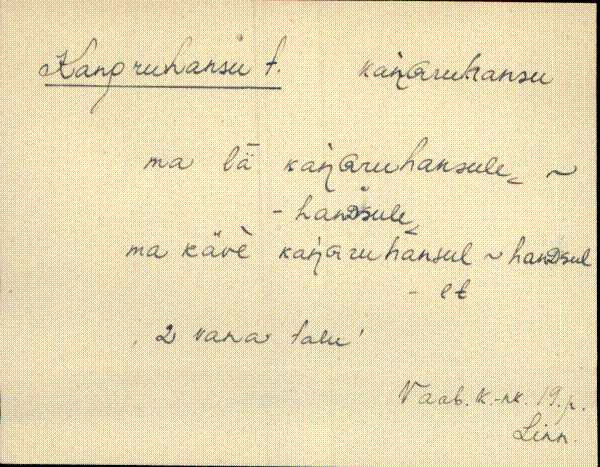 Kangruhansu t. kaŋGruhansu
ma lä kaŋGruhansule ~
- hanDsule
ma käve̬ kaŋGruhansul ~ hanDsul
- lt
, 2 vana talu'
Vaab. k.-nk. 19. p.
Linn.